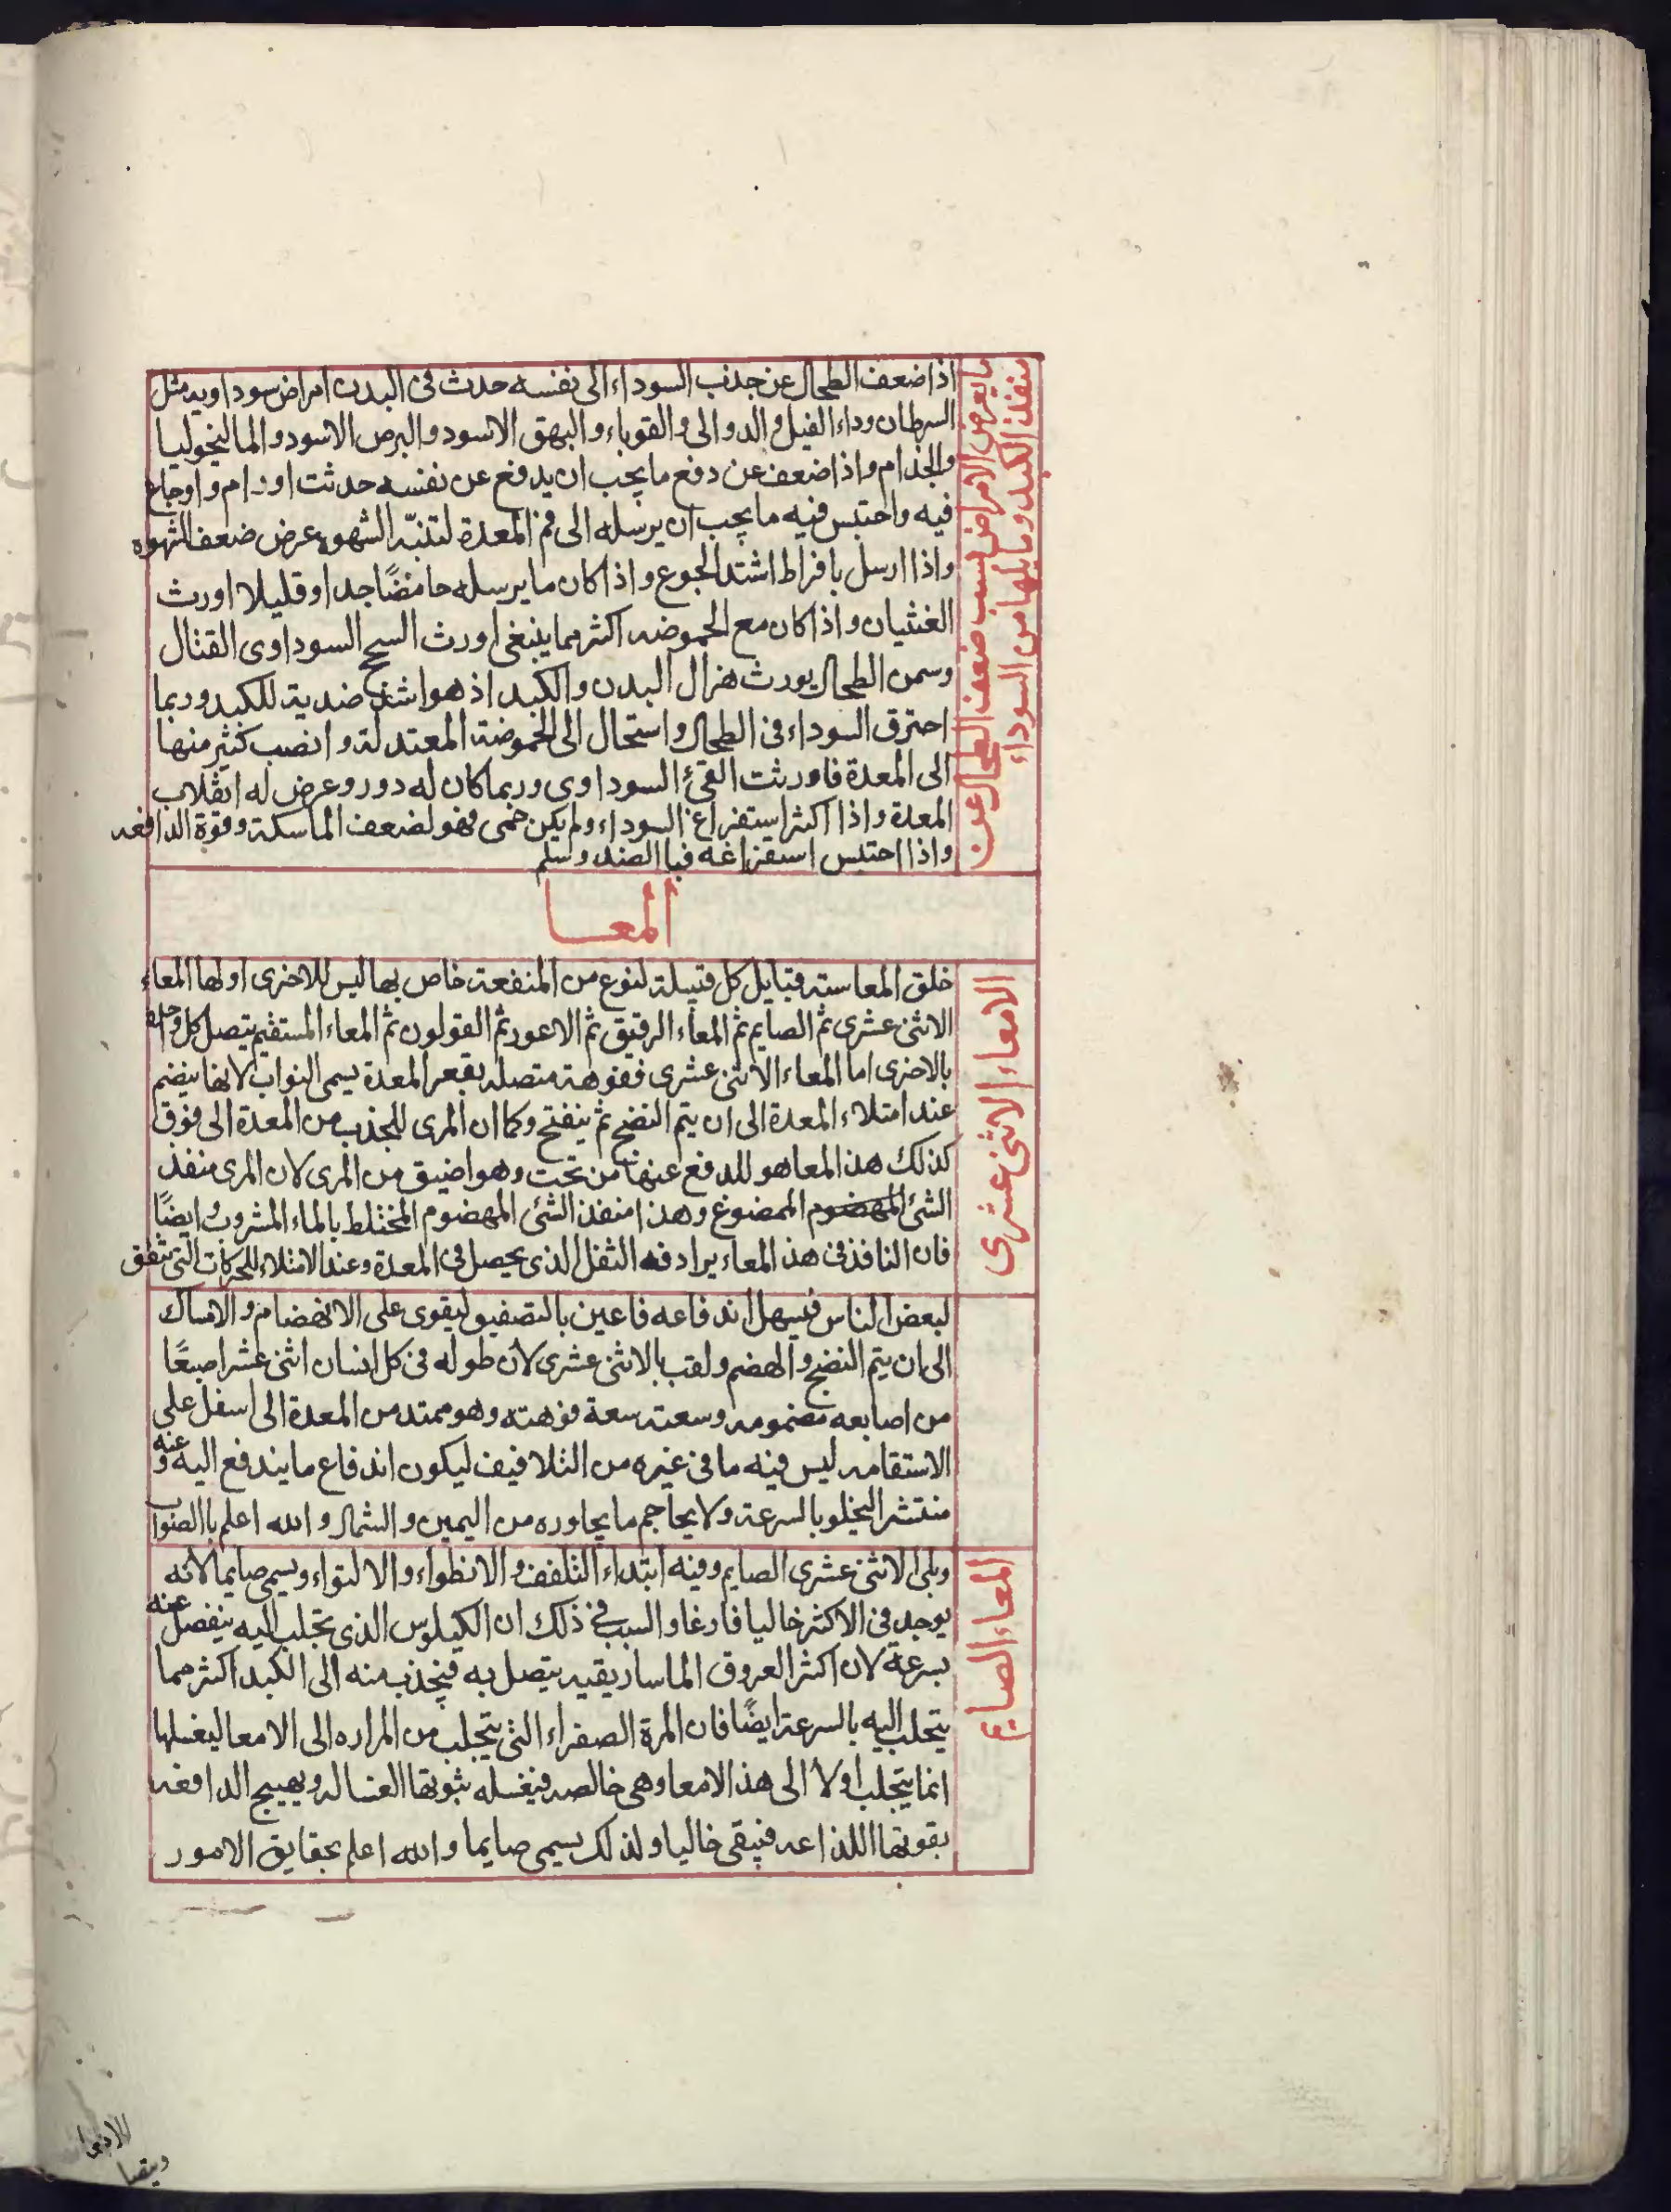 ما يعرض من الامراض لسبب ضعف الطحال عن
منفذ الكبد وما يليها من السوداء
اذا ضعف الطحال عن جذب السوداء الى نفسه حدث فى البدن امراض سوداويه مثل
السرطان وداء الفيل والدوالى والقوباء والبهق الاسود والبرص الاسود والماليخوليا
والجذام واذا ضعف عن دفع ما يجب ان يدفع عن نفسه حدثت اورام واوجاع
فيه واحتبس فيه ما يجب ان يرسله الى فم المعدة لتنبّه الشهوه عرض ضعف الشهوه
واذا ارسل بافراط اشتد الجوع واذا كان ما يرسله حامضًا جدا او قليلا اورث
الغثيان واذا كان مع الحموضه اكثر مما ينبغى اورث السحج السوداوى القتال
وسمن الطحال يورث هزال البدن والكبد اذ هو اشد ضدية للكبد وربما
احترق السوداء فى الطحال واستحال الى الحموضة المعتدلة وانصب كثير منها
الى المعدة فاورثت القئ السوداوى وربما كان له دور وعرض له انقلاب
المعدة واذا اكثر استفراغ السوداء ولم يكن حمى فهو لضعف الماسكة وقوة الدافعه
واذا احتبس استفراغه فبا الضد وسلم
المعا
الامعاء الاثنى عشرى
خلق المعا سته قبايل كل قبيلة لنوع من المنفعة خاص بها ليس للاخرى اولها المعاء
الاثنى عشرى ثم الصايم ثم المعاء الرقيق ثم الاعور ثم القولون ثم المعاء المستقيم يتصل كل واحد
بالاخرى اما المعاء الاثنى عشرى ففوهة متصله بقعر المعدة يسمى البواب لانها ينضم
عند امتلاء المعدة الى ان يتم النضج ثم ينفتح وكما ان المرى للجذب من المعدة الى فوق
كذلك هذا المعا هو للدفع عنها من تحت وهو اضيق من المرى لان المرى منفذ
الشئ المهضوم الممضوغ وهذا منفذ الشئ المهضوم المختلط بالماء المشروب وايضًا
فان النافذ فى هذا المعاء يرادفه الثفل الذى يحصل فى المعدة وعند الامتلاء للحركات التى تتفق
لبعض الناس فيسهل اندفاعه فاعين بالتضييق ليقوى على الانهضام والامساك
الى ان يتم النضج والهضم ولقب بالاثنى عشرى لان طوله فى كل انسان اثنى عشر اصبعًا
من اصابعه مضمومه وسعته سعة فوهته وهو ممتد من المعدة الى اسفل على
الاستقامه ليس فيه ما فى غيره من التلافيف ليكون اندفاع ما يندفع اليه وعنه
منتشرا ليخلو بالسرعة ولا يحاجم ما يجاوره من اليمين والشمال والله اعلم باالصواب
المعاء الصايم
ويلى الاثنى عشرى الصايم وفيه ابتداء التلفف والانطواء والالتواء ويسمى صايما لانه
يوجد فى الاكثر خاليا فارغا والسبب فى ذلك ان الكيلوس الذى تجلب اليه ينفصل عنه
بسرعة لان اكثر العروق الماساريقيه يتصل به فينجذب منه الى الكبد اكثر مما
يتحلب اليه بالسرعة ايضًا فان المرة الصفراء التى يتجلب من المراره الى الامعا ليغسلها
انما يتجلب اولا الى هذا الامعا وهى خالصه فيغسله بقوتها الغساله ويهيج الدافعه
بقوتها اللذاعه فيبقى خاليا ولذلك يسمى صايما والله اعلم بحقايق الامور